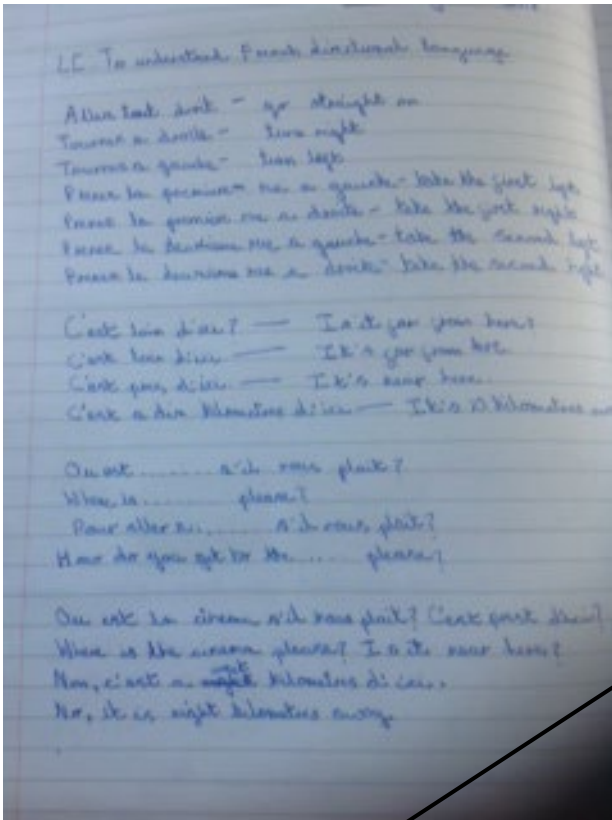 LC To understand French directional language
Allez tout droit - go straight on
Tournez a droite - turn right
Tournez a gauche - turn left
Prenez la premiere rue a gauche - take the first left
Prenez la premier rue a droite - take the first right
Prenez la deuxieme rue a gauche - take the second left
Prenez la deuxieme rue a droite - take the second right
C'est loin d'ici? — Is it far from here?
C'est loin d'ici — It's far from here
C'est pres d'ici — It's near here.
C'est a dix kilometres d'ici — It's 10 kilometres
Ou est ........ s'il vous plait?
Where is ........ please?
Pour aller a ........ s'il vous plait?
How do you get to the ..... please?
Ou est le cinema s'il vous plait? C'est d'ici?
Where is the cinema please? Is it near here?
Non, c'est a kilometres d'ici.
No, it is eight kilometres away.